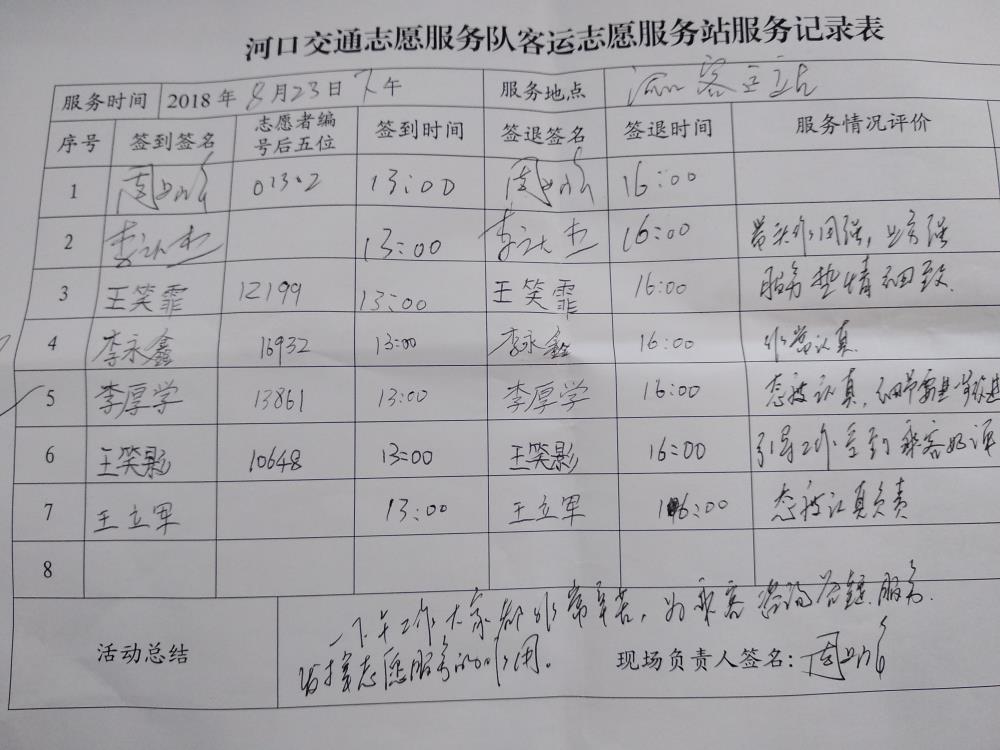 河口交通志愿服务队客运志愿服务站服务记录表
服务时间 2018年8月23日下午 服务地点 客运站
序号 签到签名 志愿者编号后五位 签到时间 签退签名 签退时间 服务情况评价
1 周 01302 13:00 周 16:00
2 李 13:00 李 16:00 强
3 王笑霏 12199 13:00 王笑霏 16:00 服务热情细致.
4 李永鑫 16932 13:00 李永鑫 16:00 非常认真
5 李厚学 13861 13:00 李厚学 16:00 态度认真,细节
6 王笑影 10648 13:00 王笑影 16:00 引导工作受到乘客好评
7 王立军 13:00 王立军 16:00 态度认真负责
8
活动总结 一下午工作大家都非常辛苦,为乘客 服务.
志愿服务的作用。 现场负责人签名:周